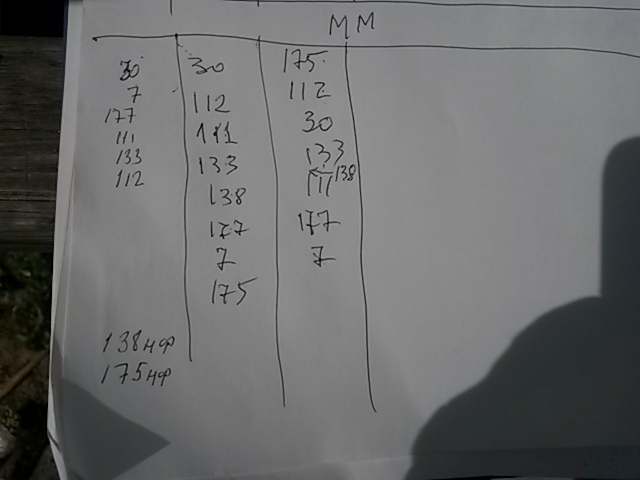 MM
30 30 175
7 112 112
177 111 30
111 133 133
133 138 111 138
112 177 177
7 7
175
138нф
175нф